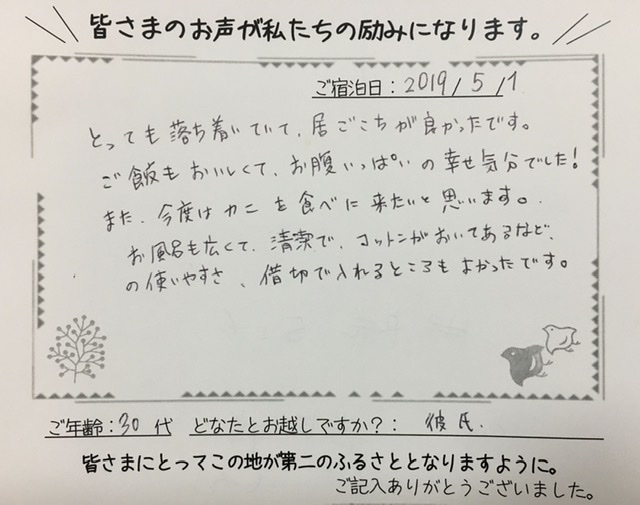 皆さまのお声が私たちの励みになります。
ご宿泊日:2019/5/1
とっても落ち着いていて、居ごこちが良かったです。
ご飯もおいしくて、お腹いっぱいの幸せ気分でした!
また、今度はカニを食べに来たいと思います。
お風呂も広くて、清潔で、コットンがおいてあるなど、
の使いやすさ、借切で入れるところもよかったです。
ご年齢:30代 どなたとお越しですか?: 彼氏.
皆さまにとってこの地が第二のふるさととなりますように。
ご記入ありがとうございました。